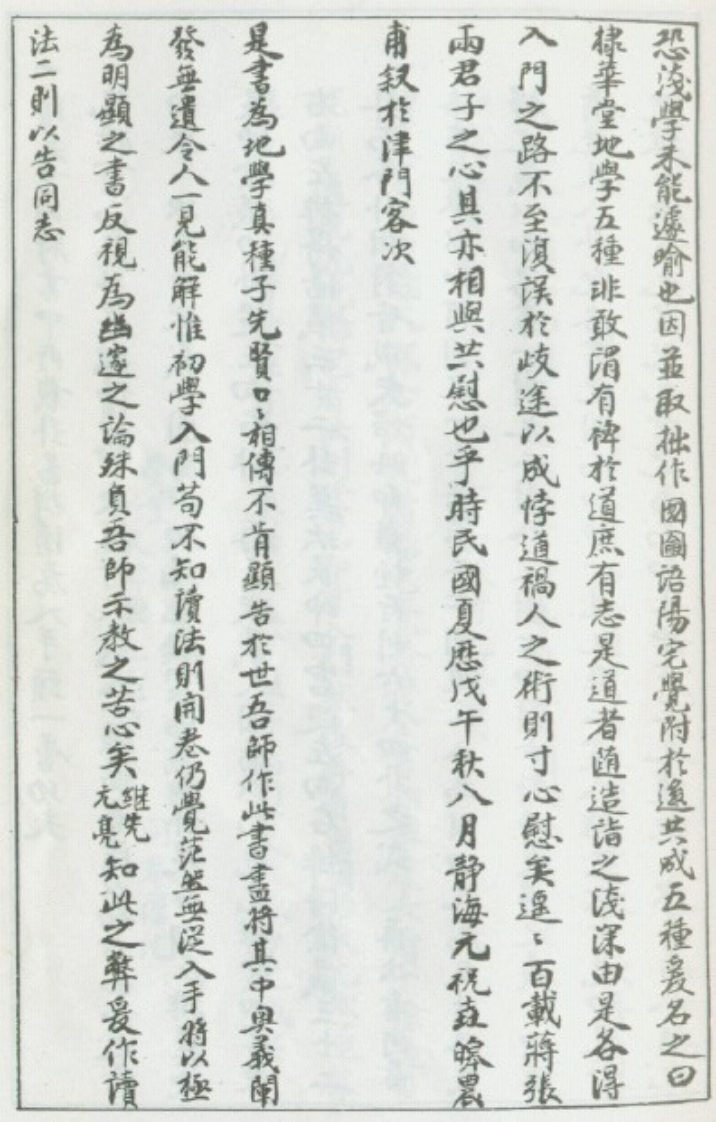 恐淺學未能遽喻也因並取拙作圖語陽宅覺附於後共成五種爰名之曰
棣華堂地學五種非敢謂有裨於道庶有志是道者隨造詣之淺深由是各得
入門之路不至復誤於歧途以成悖道禍人之術則寸心慰矣遑遑百載蔣張
兩君子之心其亦相與共慰也乎時民國夏歷戊午秋八月靜海元祝垚皞農
甫叙於津門客次
是書為地學真種子先賢口口相傳不肯顯告於世吾師作此書盡將其中奧義闡
發無遺令人一見能解惟初學入門苟不知讀法則開卷仍覺茫然無從入手將以極
為明顯之書反視為幽邃之論殊負吾師示教之苦心矣繼先元亮知此之弊爰作讀
法二則以告同志